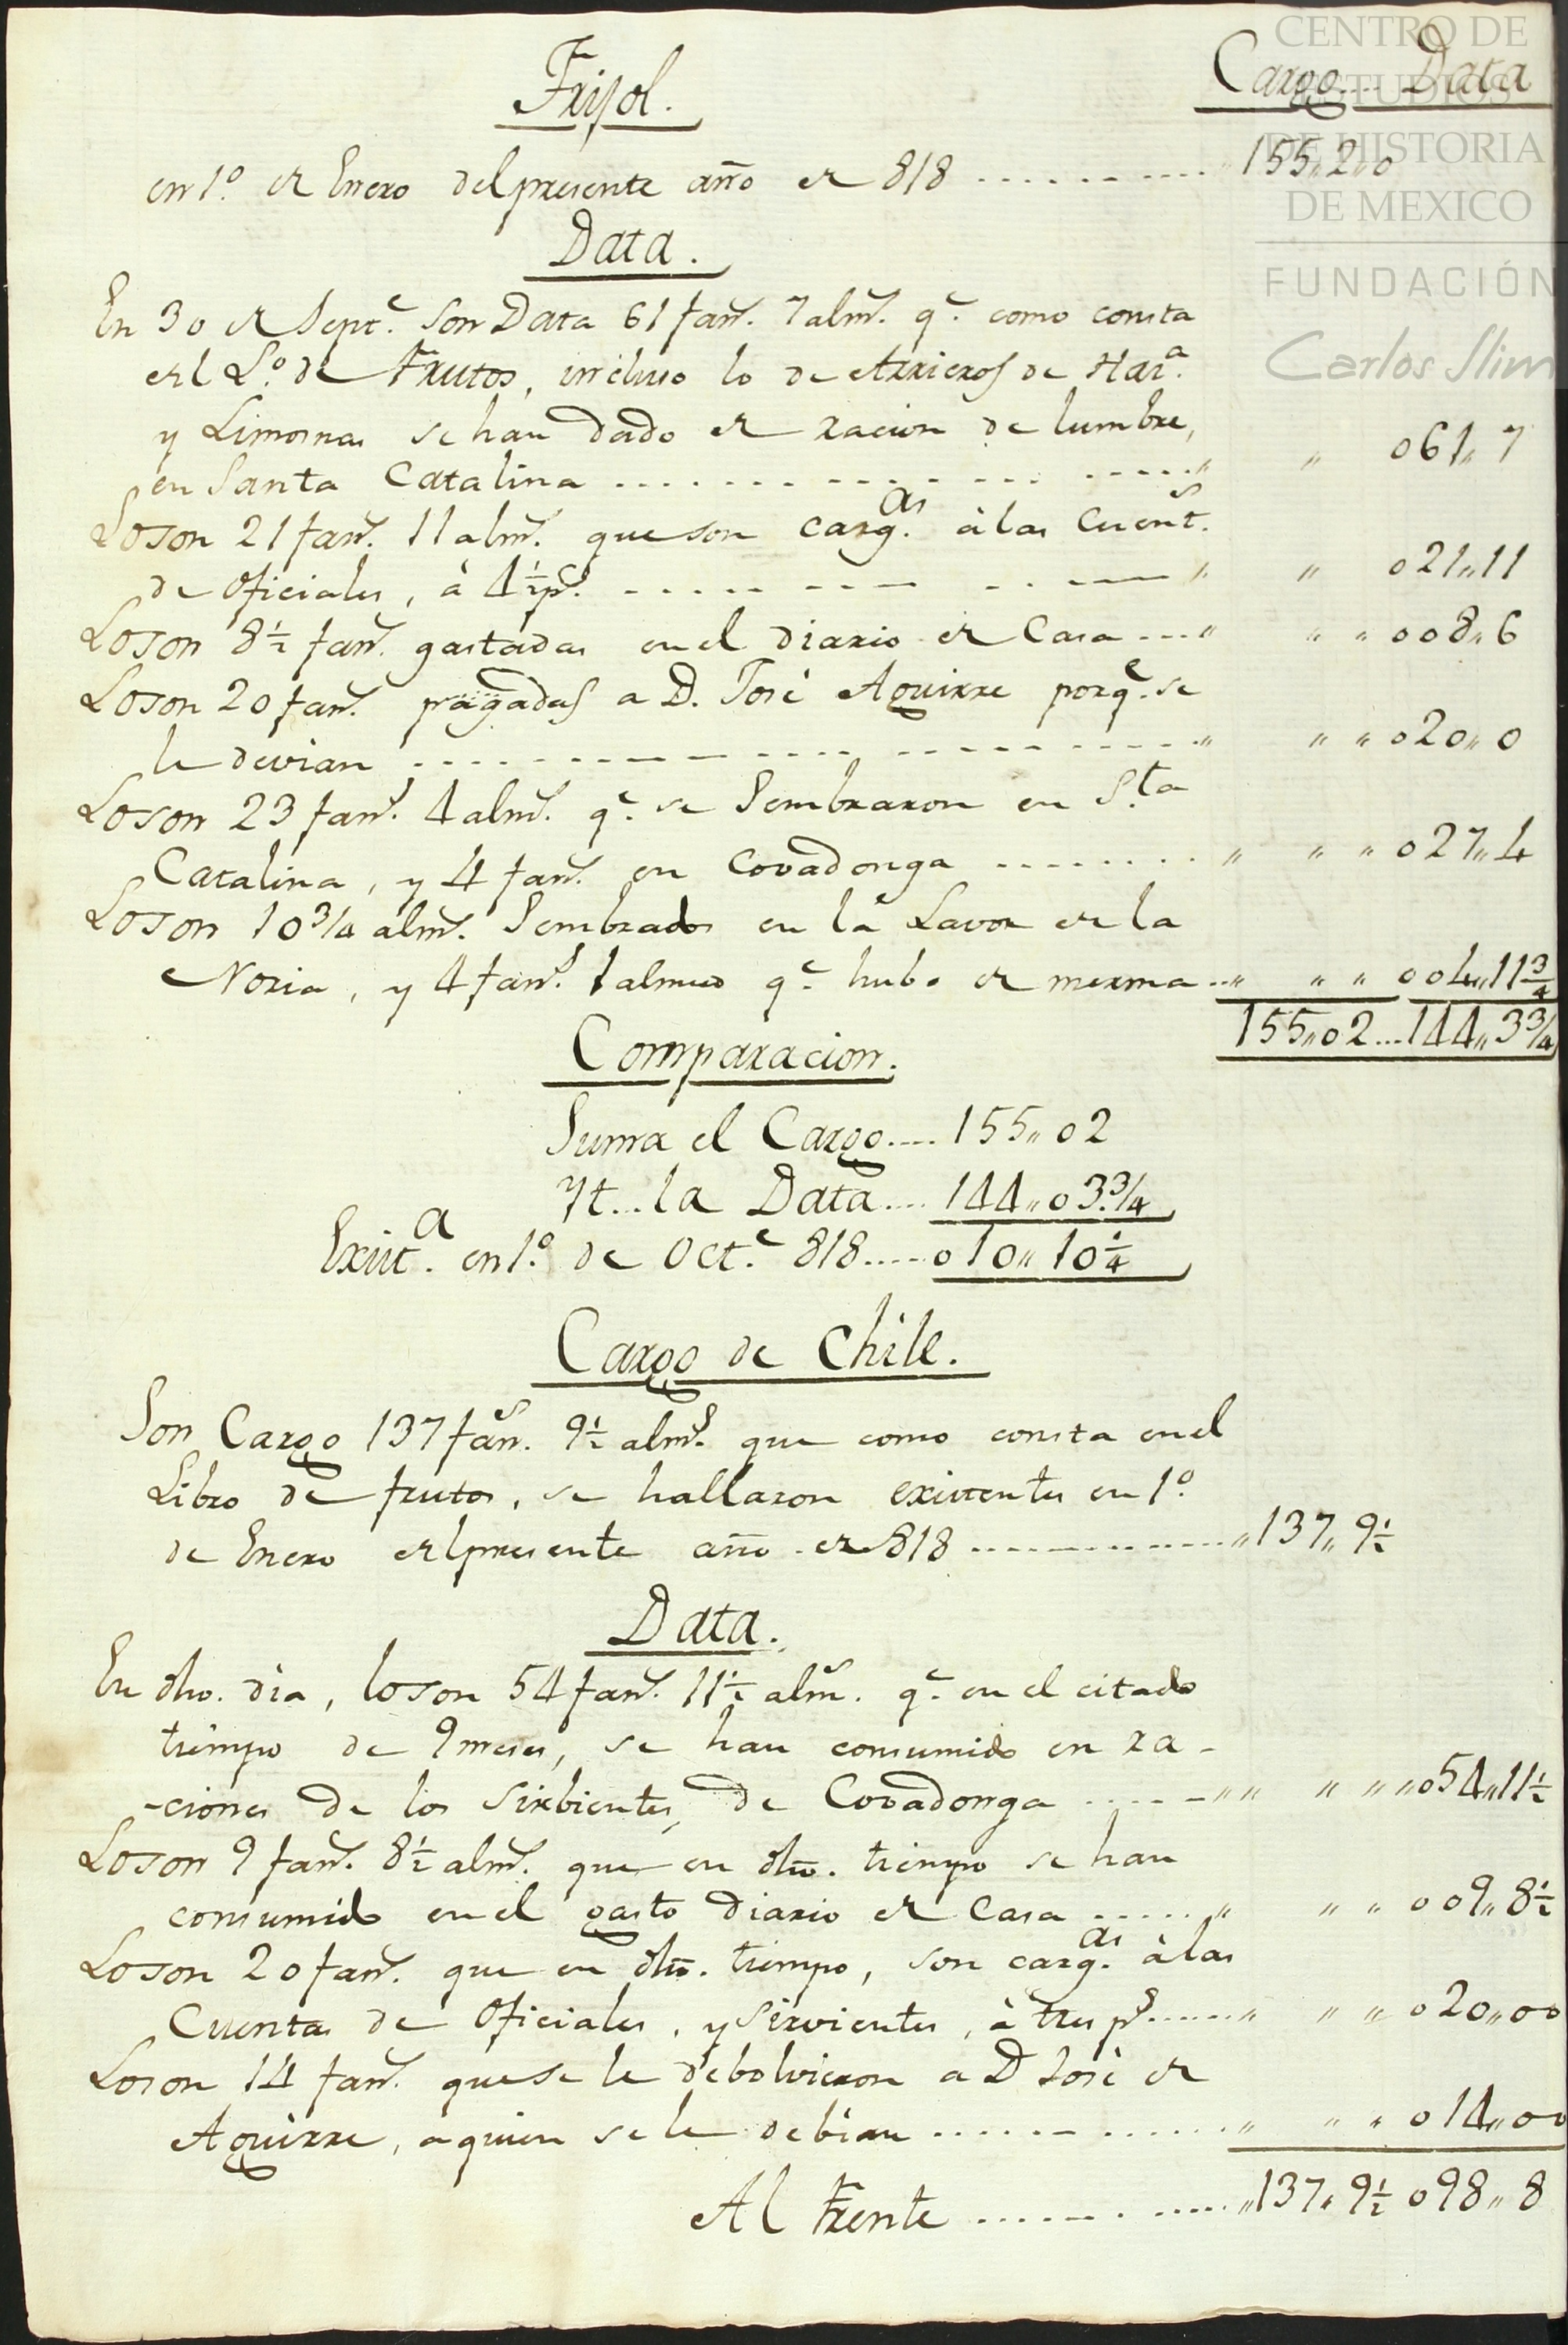 CENTRO DE
ESTUDIOS
DE HISTORIA
DE MEXICO
FUNDACIÓN
Carlos Slim
Frijol. Cargo.... Data
en 1.º de Enero del presente año de 818 .......... 155,,2,,0
Data.
En 30 de Sept.e son Data 61 fan.s 7 alm.s q.e como consta
del L.o de Frutos, incluso lo de Arrieros de Har.a
y Limosnas se han dado de racion de lumbre,
en Santa Catalina .......... ,, ,, 061,,7
Loson 21 fan.s 11 alm.s que son carg.as à las Cuent.s
de Oficiales, à 4½ p.s .......... ,, ,, 021,,11
Loson 8½ fan.s gastadas en el diario de Casa ...,, ,, ,, 008,,6
Loson 20 fan.s pagadas a D. José Aguirre porq.e se
le devian .......... ,, ,, ,, 020,,0
Loson 23 fan.s 4 alm.s q.e se Sembraron en S.ta
Catalina, y 4 fan.s en Covadonga .......... ,, ,, ,, 027,,4
Loson 10¾ alm.s Sembrados en la Lavor de la
Noria, y 4 fan.s 1 almud q.e hubo de merma ..,, ,, ,, 004,,11¾
155,,02...144,,3¾
Comparacion.
Suma el Cargo.... 155,,02
Yt... la Data.... 144,,03¾
Exist.a en 1.º de Oct.e 818.....010,,10¼
Cargo de Chile.
Son Cargo 137 fan.s 9½ alm.s que como consta en el
Libro de frutos, se hallaron existentes en 1.º
de Enero del presente año de 818 .......... ,,137,,9½
Data.
En dho. dia, loson 54 fan.s 11½ alm.s q.e en el citado
tiempo de 9 meses, se han consumido en ra-
-ciones de los Sirbientes, de Covadonga ......,,,, ,, ,, ,,054,,11½
Loson 9 fan.s 8½ alm.s que en dho. tiempo se han
consumido en el gasto Diario de Casa ......,, ,, ,, 009,,8½
Loson 20 fan.s que en dho. tiempo, son carg.as à las
Cuentas de Oficiales, y Sirvientes, à tres p.s ......,, ,, ,, 020,,00
Loson 14 fan.s que se le debolvieron a D José de
Aguirre, a quien se le debian .......... ,, ,, ,, 014,,00
Al Frente .......... ,,137,,9½ 098,,8